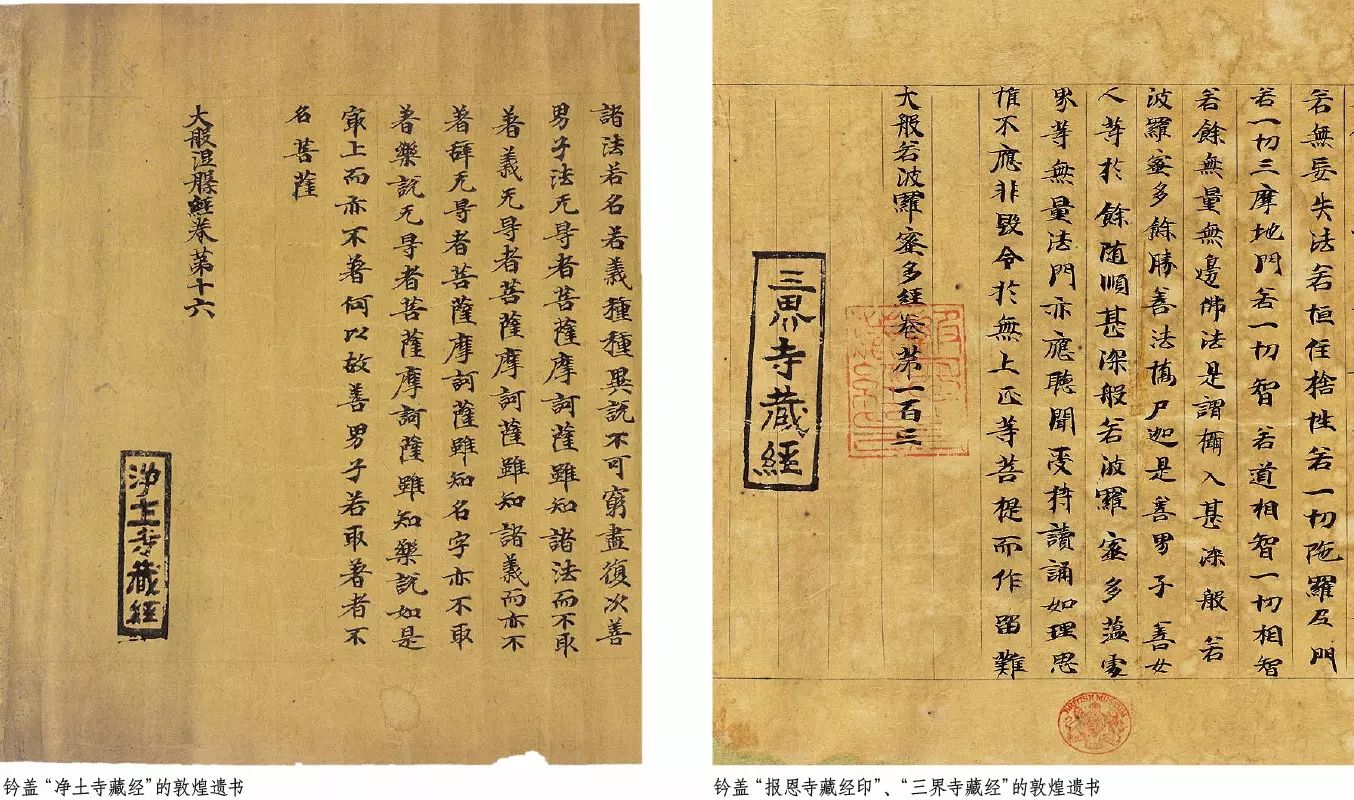 諸法若名若義種種異說不可窮盡復次善
男子法无㝵者菩薩摩訶薩雖知諸法而不取
著義无㝵者菩薩摩訶薩雖知諸義而亦不
著辞无㝵者菩薩摩訶薩雖知名字亦不取
著樂說无㝵者菩薩摩訶薩雖知樂說如是
㝡上而亦不著何以故善男子若取著者不
名菩薩
大般涅槃經卷第十六
淨土寺藏經
钤盖“净土寺藏经”的敦煌遗书
若無忘失法若恒住捨性若一切陁羅尼門
若一切三摩地門若一切智若道相智一切相智
若餘無量無邊佛法是謂攝入甚深般若
波羅蜜多餘勝善法憍尸迦是善男子善女
人等於餘随順甚深般若波羅蜜多蕴處
界等無量法門亦應聽聞受持讀誦如理思
惟不應非毀令於無上正等菩提而作留難
大般若波羅蜜多經卷第一百三
三界寺藏經
BRITISH MUSEUM
钤盖“报恩寺藏经印”、“三界寺藏经”的敦煌遗书